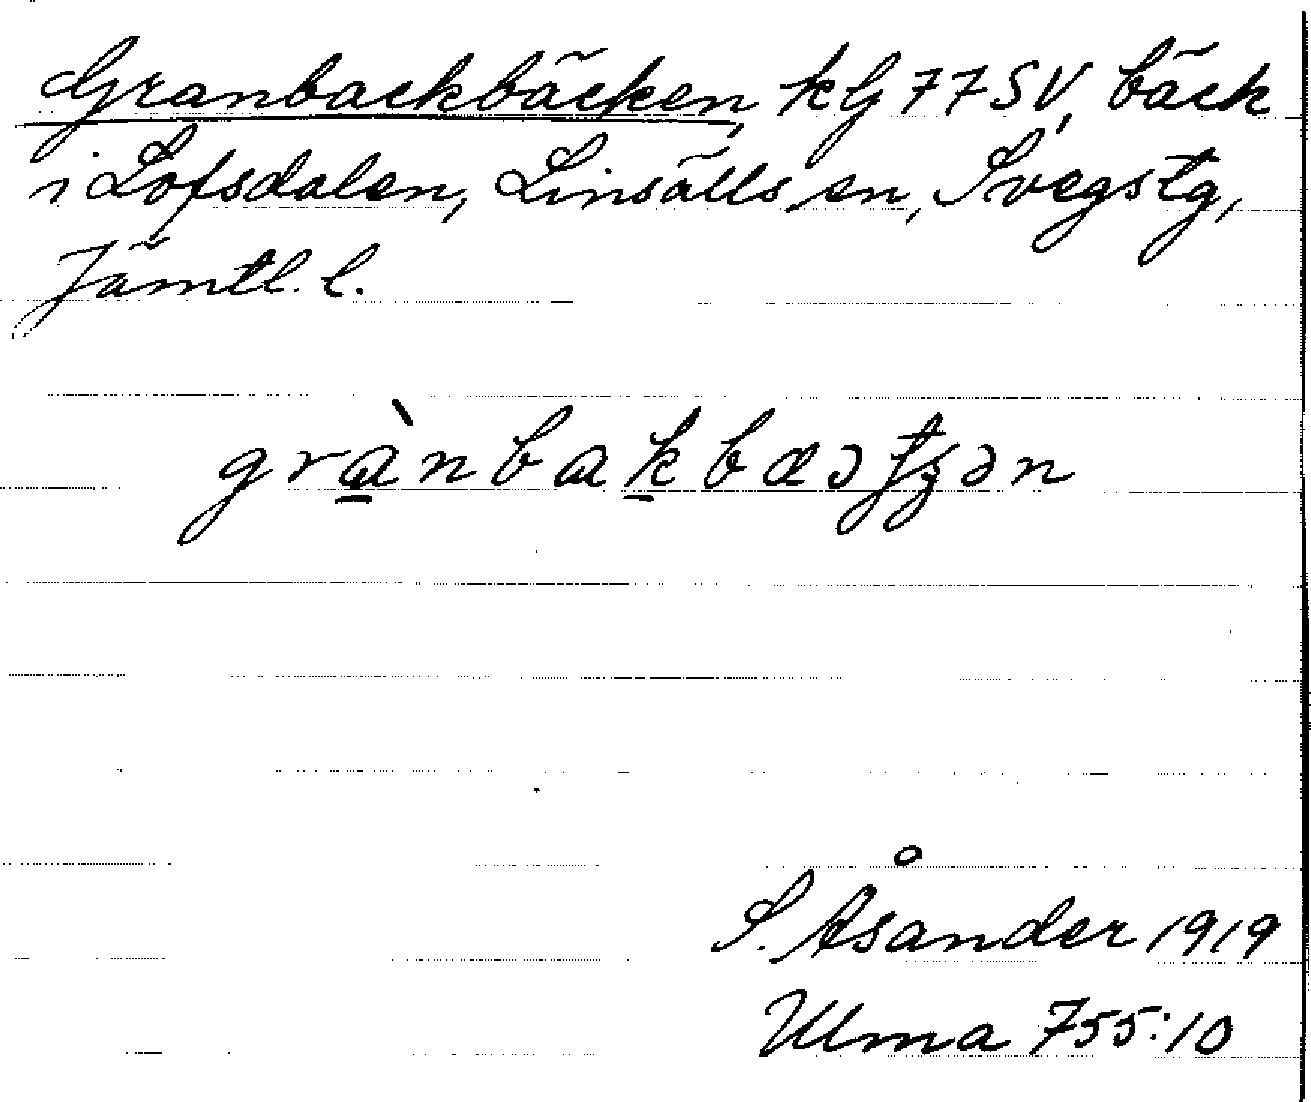 Granbackbäcken, kG 77SV, bäck
i Lofsdalen, Linsälls sn, Svegs tg,
Jämtl. l.
grànbakbæəʈʐən
S. Åsander 1919
Ulma 755:10